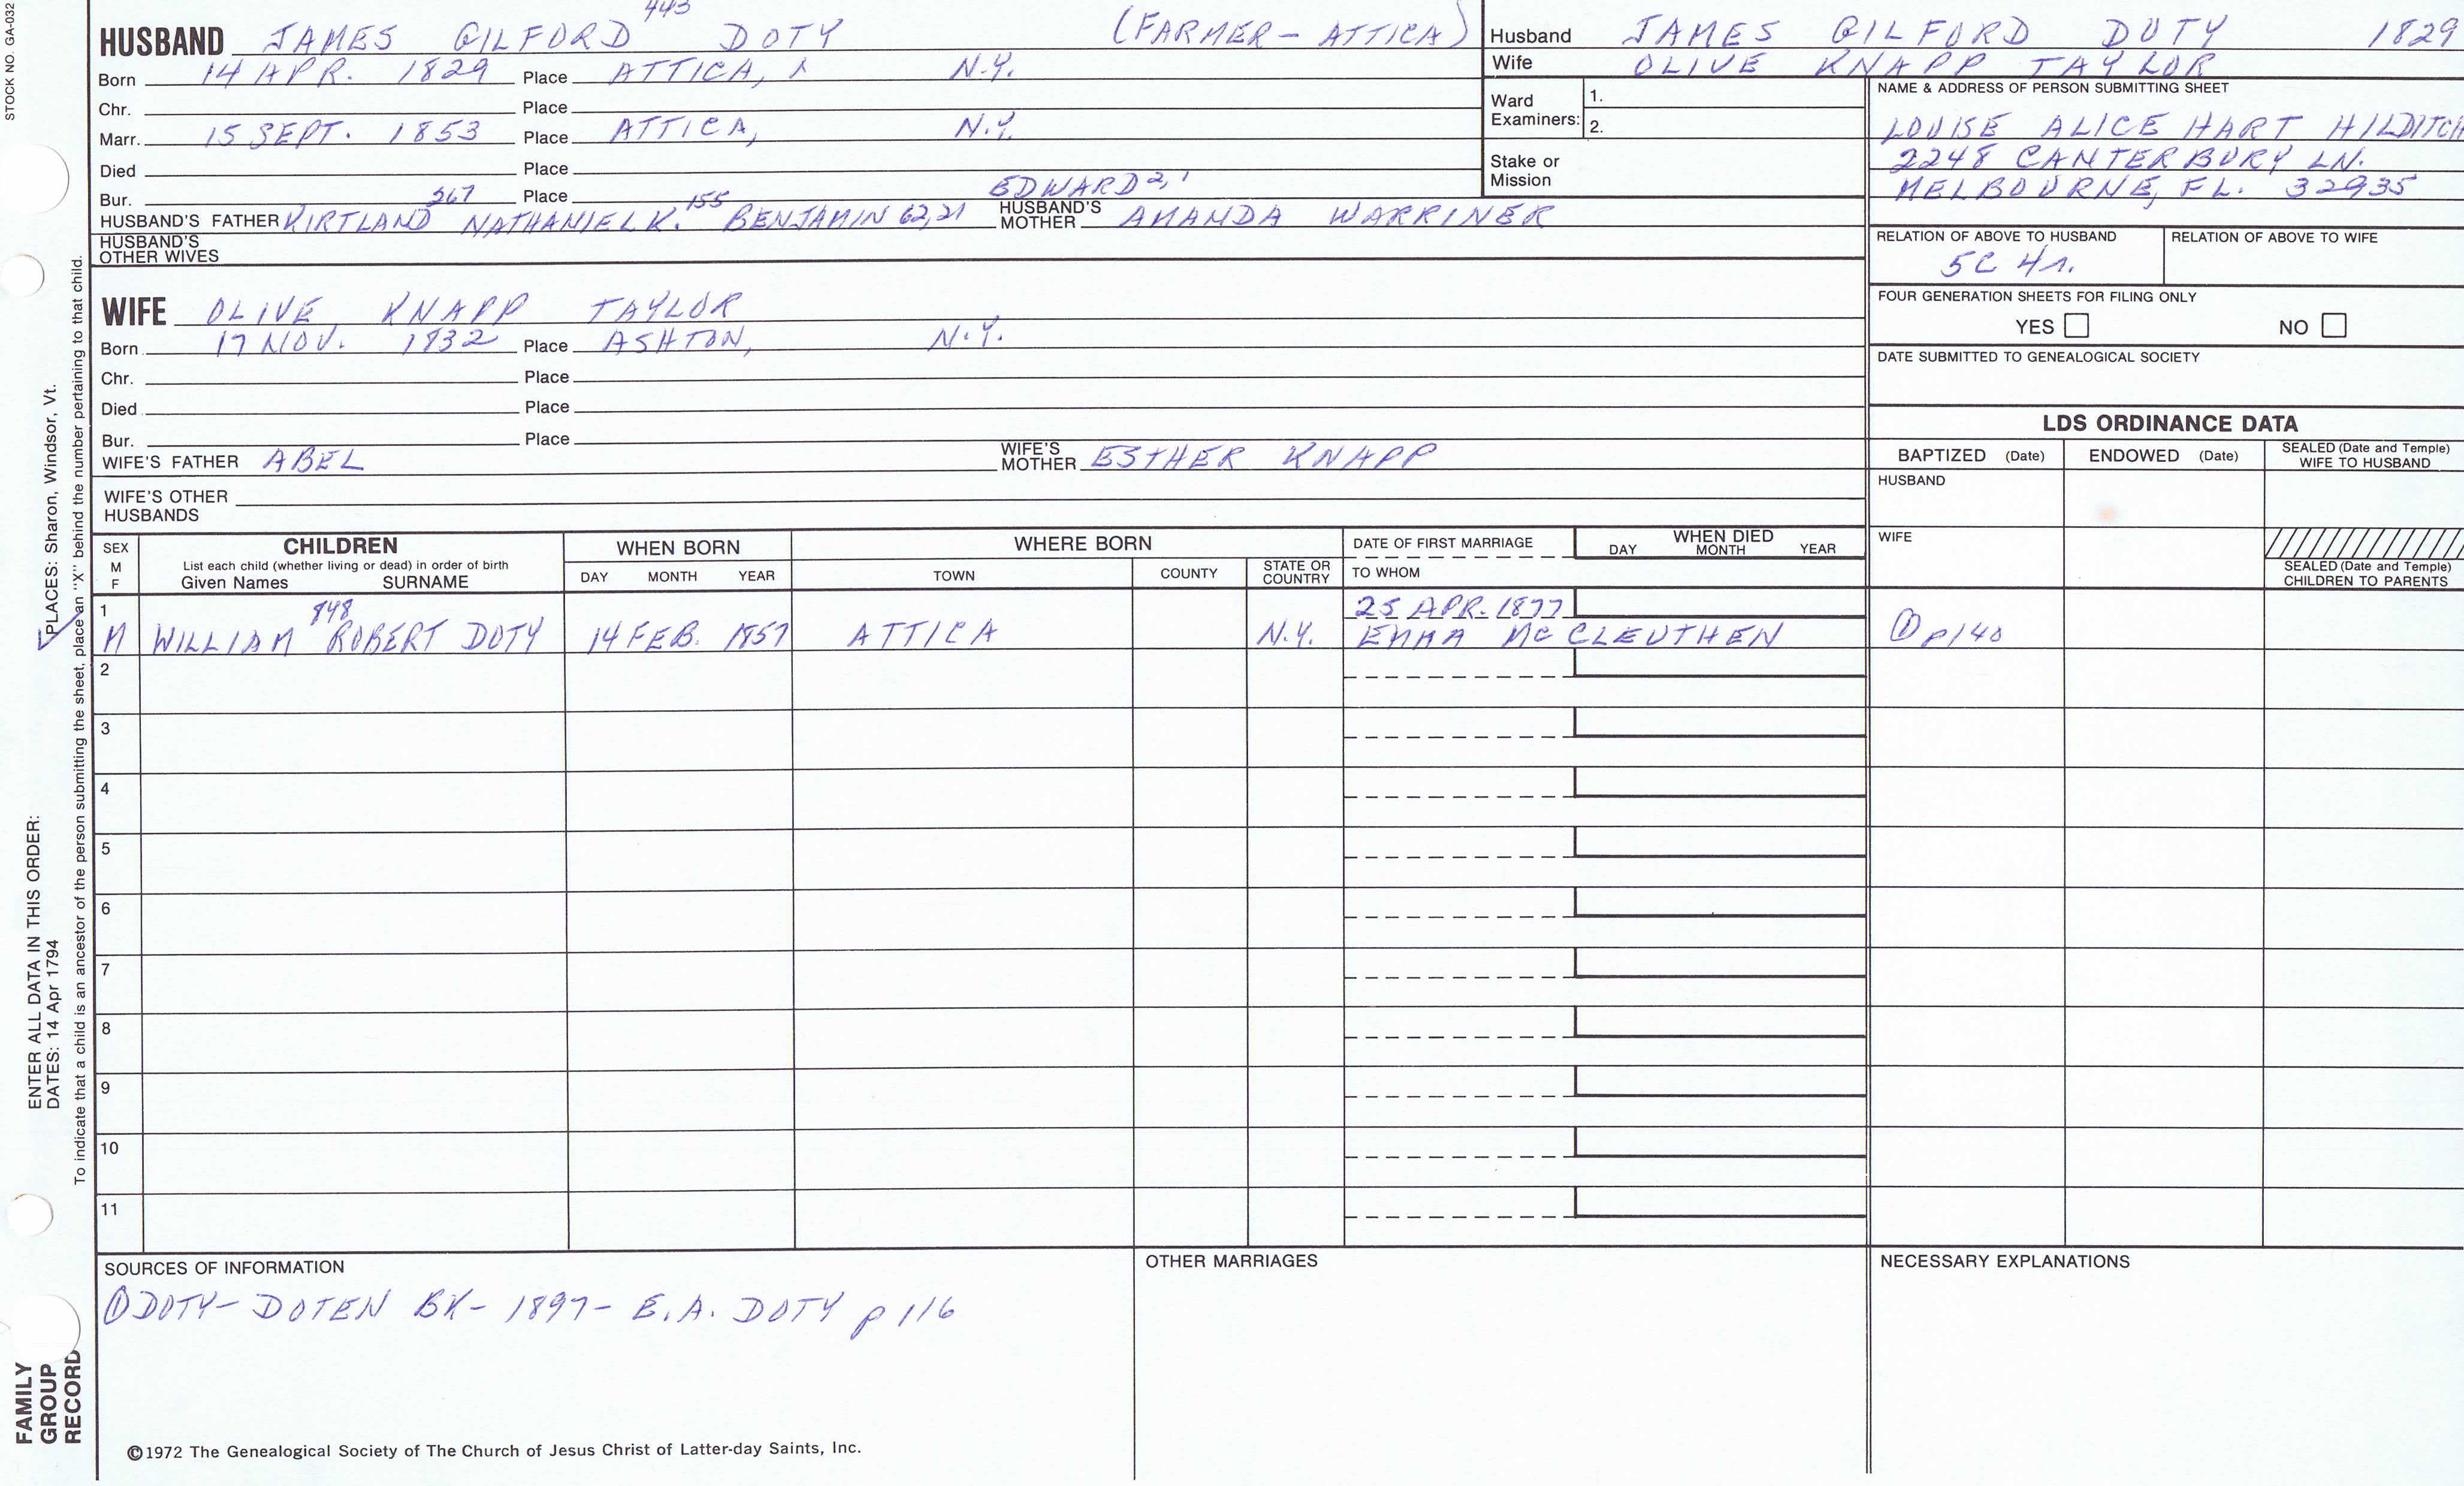 STOCK NO. GA-032
443
HUSBAND JAMES GILFORD DOTY (FARMER - ATTICA)
Born 14 APR. 1829 Place ATTICA, N.Y.
Chr. Place
Marr. 15 SEPT. 1853 Place ATTICA, N.Y.
Died Place
Bur. Place
267 155 EDWARD 2, 1
HUSBAND'S FATHER KIRTLAND NATHANIEL K. BENJAMIN 62, 21 HUSBAND'S MOTHER AMANDA WARRINER
HUSBAND'S OTHER WIVES
WIFE OLIVE KNAPP TAYLOR
Born 17 NOV. 1832 Place ASHTON, N.Y.
Chr. Place
Died Place
Bur. Place
WIFE'S FATHER ABEL WIFE'S MOTHER ESTHER KNAPP
WIFE'S OTHER HUSBANDS
Husband JAMES GILFORD DOTY 1829
Wife OLIVE KNAPP TAYLOR
Ward Examiners: 1.
2.
Stake or Mission
NAME & ADDRESS OF PERSON SUBMITTING SHEET
LOUISE ALICE HART HILDITCH
2248 CANTERBURY LN.
MELBOURNE, FL. 32935
RELATION OF ABOVE TO HUSBAND RELATION OF ABOVE TO WIFE
5C 4r.
FOUR GENERATION SHEETS FOR FILING ONLY
YES NO
DATE SUBMITTED TO GENEALOGICAL SOCIETY
LDS ORDINANCE DATA
BAPTIZED (Date) ENDOWED (Date) SEALED (Date and Temple) WIFE TO HUSBAND
HUSBAND
WIFE
SEALED (Date and Temple) CHILDREN TO PARENTS
SEX M F
CHILDREN
List each child (whether living or dead) in order of birth
Given Names SURNAME
WHEN BORN
DAY MONTH YEAR
WHERE BORN
TOWN COUNTY STATE OR COUNTRY
DATE OF FIRST MARRIAGE
TO WHOM
WHEN DIED
DAY MONTH YEAR
1 848 25 APR. 1877
M WILLIAM ROBERT DOTY 14 FEB. 1857 ATTICA N.Y. EMMA MC CLEUTHEN ① p140
2
3
4
5
6
7
8
9
10
11
SOURCES OF INFORMATION
① DOTY - DOTEN BK - 1897 - E.A. DOTY p 116
OTHER MARRIAGES
NECESSARY EXPLANATIONS
©1972 The Genealogical Society of The Church of Jesus Christ of Latter-day Saints, Inc.
ENTER ALL DATA IN THIS ORDER:
DATES: 14 Apr 1794
PLACES: Sharon, Windsor, Vt.
To indicate that a child is an ancestor of the person submitting the sheet, place an "X" behind the number pertaining to that child.
FAMILY
GROUP
RECORD